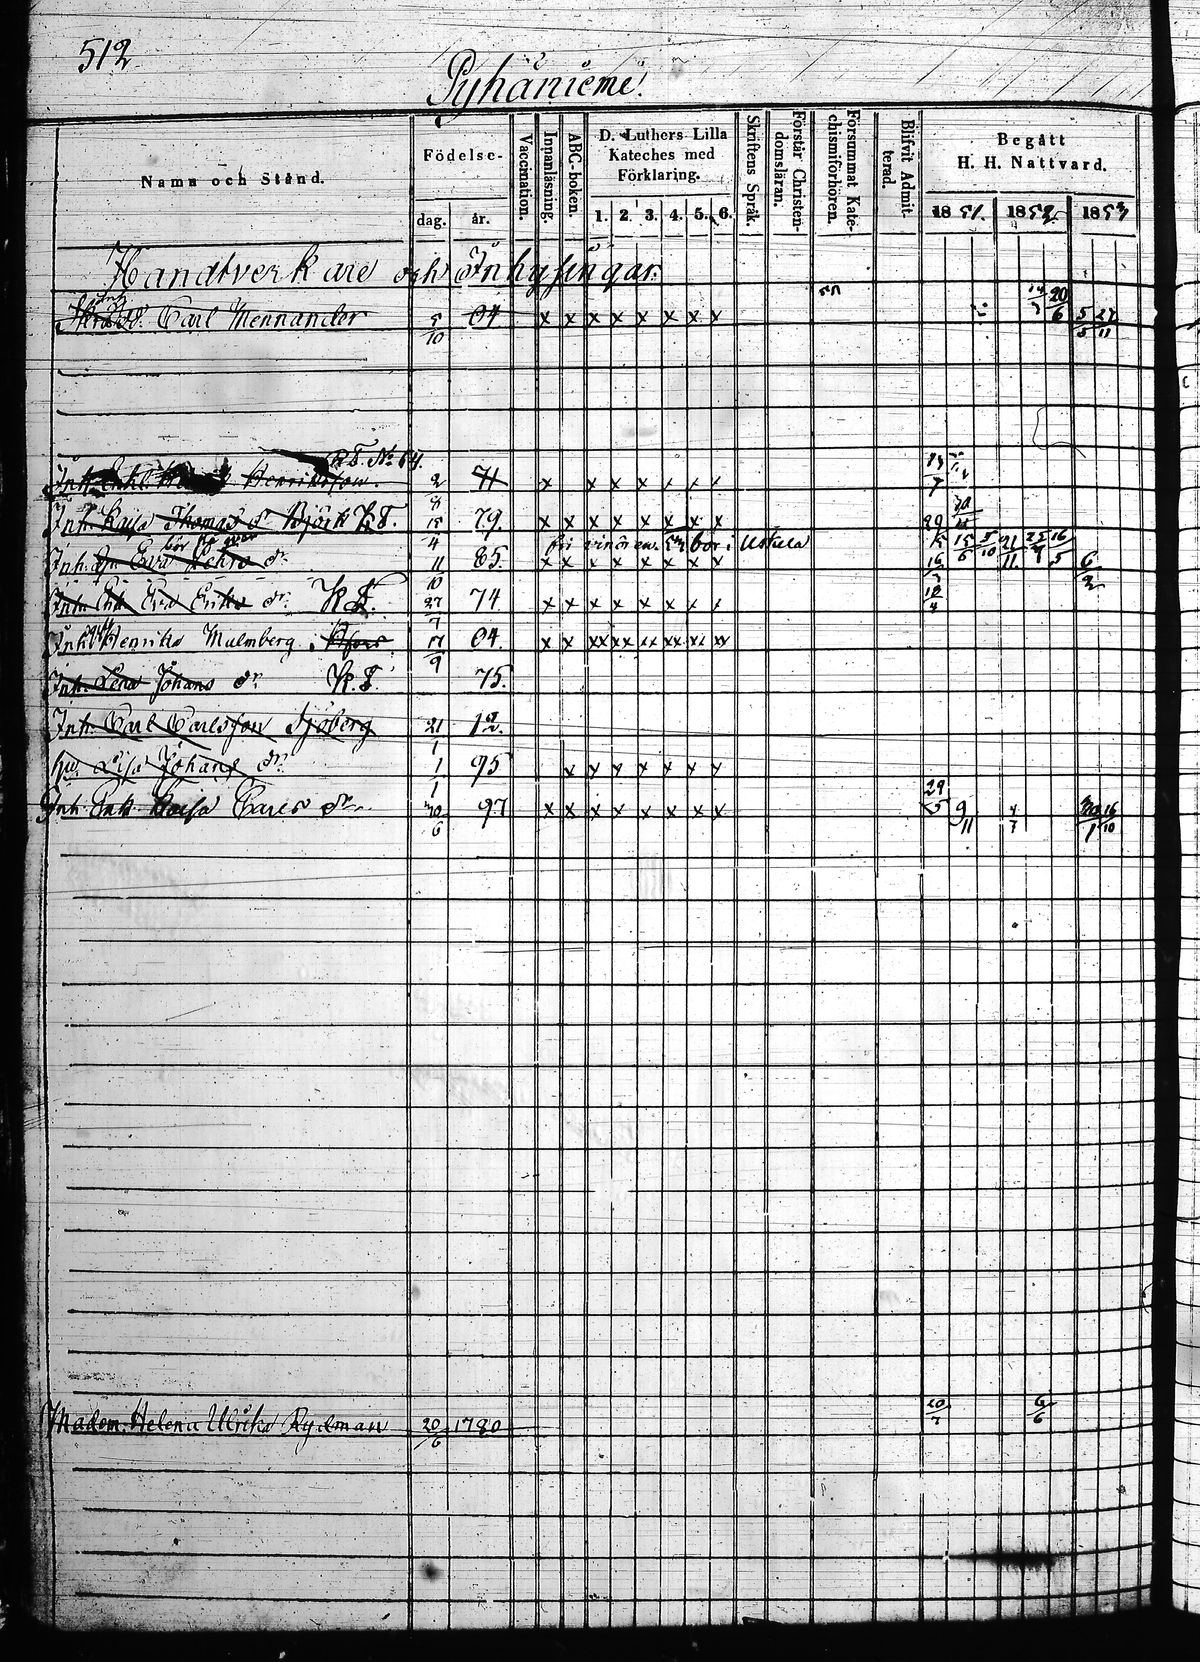 512
Pyhäniemi
Namn och Stånd.
Födelse-
dag. år.
Vaccination.
Innanläsning.
ABC-boken.
D. Luthers Lilla
Kateches med
Förklaring.
1. 2. 3. 4. 5. 6.
Skriftens Språk.
Förstår Christen-
domsläran.
Försummat Kate-
chismiförhören.
Blifvit Admit-
terad.
Begått
H. H. Nattvard.
1851. 1852. 1853
Handtverkare och Inhysingar
Carl Mennander 5/10 04 x x x x x x x x
K.T. No 64.
Inh. Enkl. Henriksson. 2/8 71 x x x x x x x
Inh. Kaisa Thomas dr Björk K.T. 15/4 79. x x x x x x x x
bor i Uskela
Inh. Eva dr. 11/10 85. x x x x x x x x
Inh. Enk. Eva Eriks dr. K.T. 27/7 74 x x x x x x x x
Inh. Henrika Malmberg 17/9 04. x x xx xx xx xx xx xx
Inh. Lena Johans dr K.T. 75.
Inh. Carl Carlsson Sjöberg 21/1 12.
hu. Lisa Johans dr. 1/1 95 x x x x x x x
Inh. Enk. Kaisa Carls dr. 30/6 97 x x x x x x x x
Madem. Helena Ulrika Rydman 20/6 1780 20/7 6/6